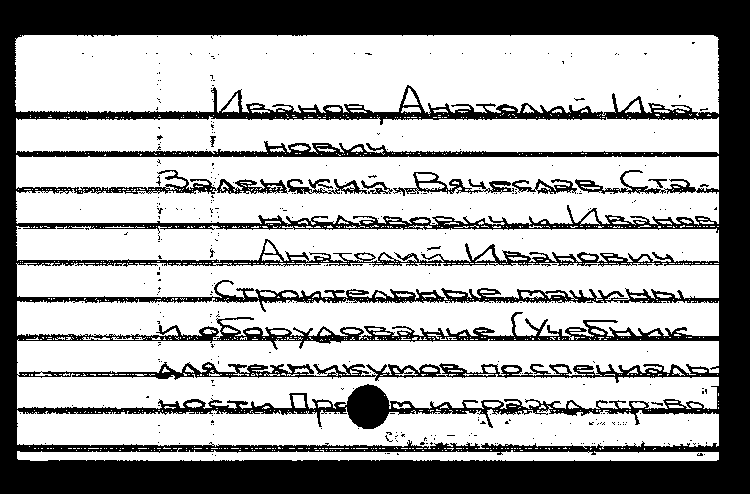 Иванов, Анатолий Ива-
нович
Заленский Вячеслав Ста-
ниславович и Иванов
Анатолий Иванович
Строительные машины
и оборудование (Учебник
для техникумов по специаль-
ности и гражд. стр-во